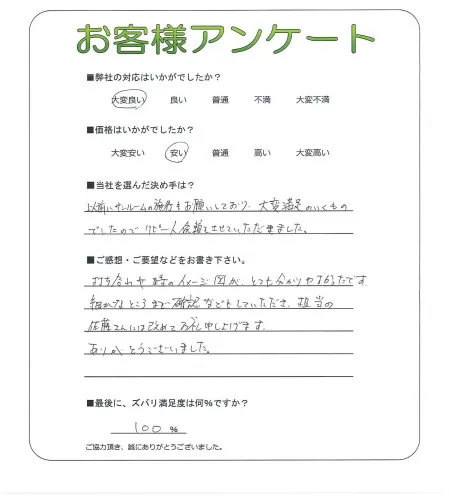 お客様アンケート
■弊社の対応はいかがでしたか？
大変良い 良い 普通 不満 大変不満
■価格はいかがでしたか？
大変安い 安い 普通 高い 大変高い
■当社を選んだ決め手は？
以前にサンルームの施行もお願いしており、大変満足のいくもの
でしたので リピート依頼をさせていただきました。
■ご感想・ご要望などをお書き下さい。
打ち合わせ時のイメージ図が、とても分かりやすかったです
細かなところまで確認などもしていただき、担当の
佐藤さんには改めてお礼申し上げます。
ありがとうございました。
■最後に、ズバリ満足度は何％ですか？
100 ％
ご協力頂き、誠にありがとうございました。